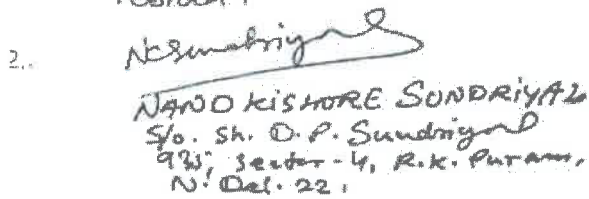 2..
NCSundriyal
NAND KISHORE SUNDRIYAL
S/o. Sh. D.P. Sundriyal
935, Sector-4, R.K. Puram,
N. Del. 22.